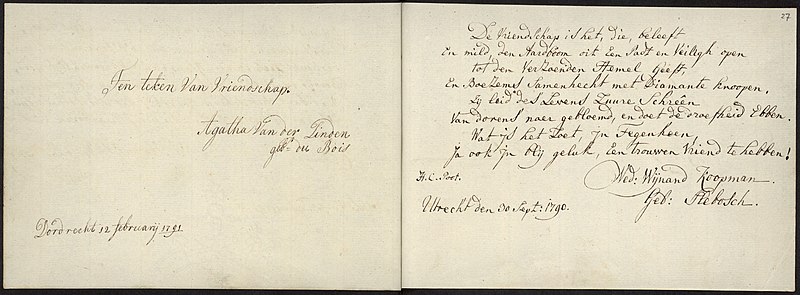 Ten teken van vriendschap.
Agatha van der Linden
geb: du Bois
Dordrecht 12 februarij 1791
27
De Vriendschap is het, die, beleeft
En mild, den Aardboom uit Een Padt en Veiligh open
tot den Hemel Geeft,
En Boezems Samenhecht met Diamante knoopen,
Zij leid des Levens Zuure Schreên
Van dorens naer gebloemd, en doet de droefheid Ebben.
Wat is het Zoet, in Tegenheen,
Ja ook in blij geluk, Een trouwen Vriend te hebben!
H. C. Poot.
Wed: Wijnand Koopman
Utrecht den 30 Sept: 1790.
Geb: Stebosch.